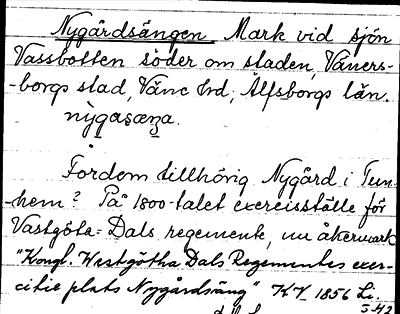 Nygårdsängen Mark vid sjön
Vassbotten söder om staden, Väners-
-borgs stad, Väne hd, Älfsborgs län.
Fordom tillhörig Nygård i Tun-
-hem? På 1800-talet exercisställe för
Västgöta-Dals regemente, nu åkermark
"Kongl. Westgötha Dals Regementes exer-
citie plats Nygårdsäng" KV 1856 Li.